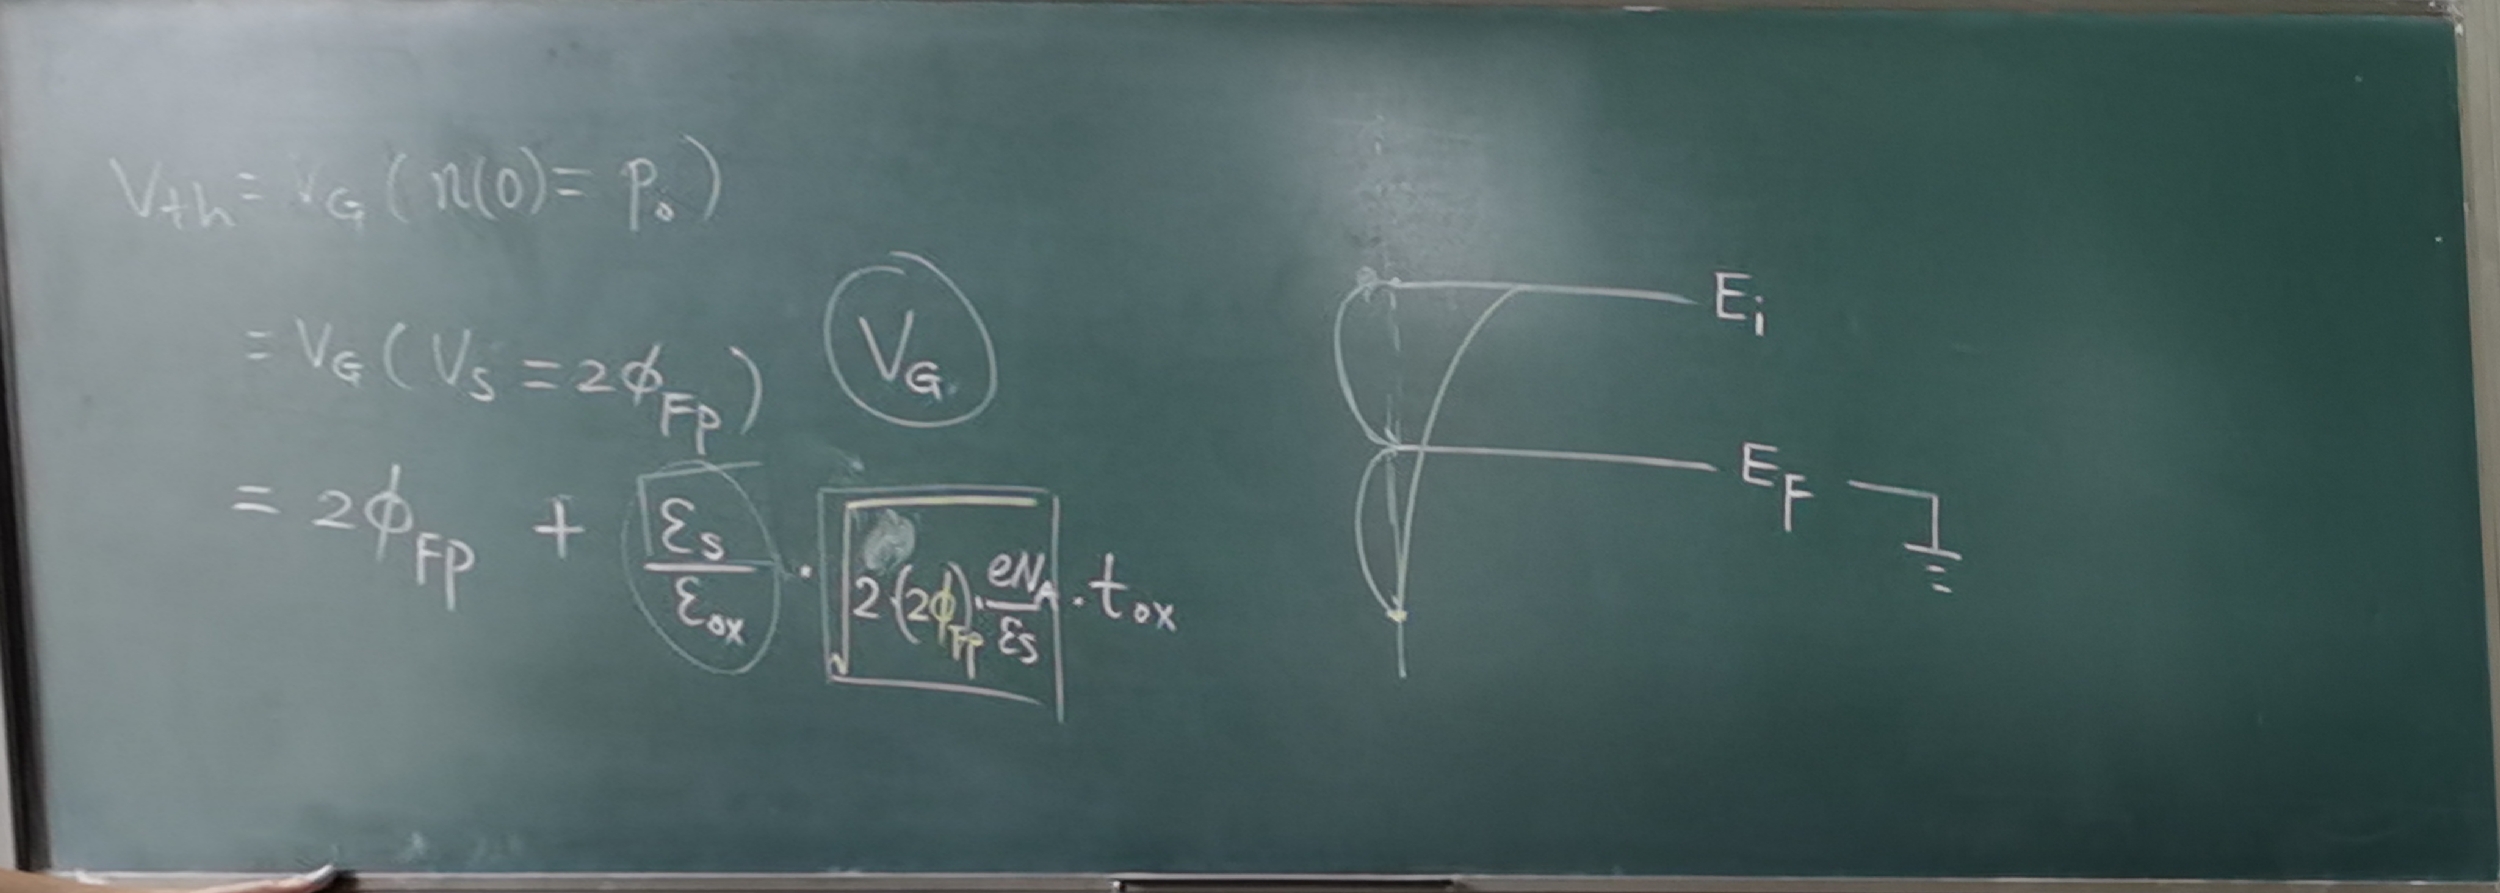 Vth = VG ( n(0) = p₀ )
= VG ( VS = 2ϕFp )
VG
= 2ϕFp + εs/εox · √(2(2ϕFp)·eNA/εs) · tox
Ei
EF